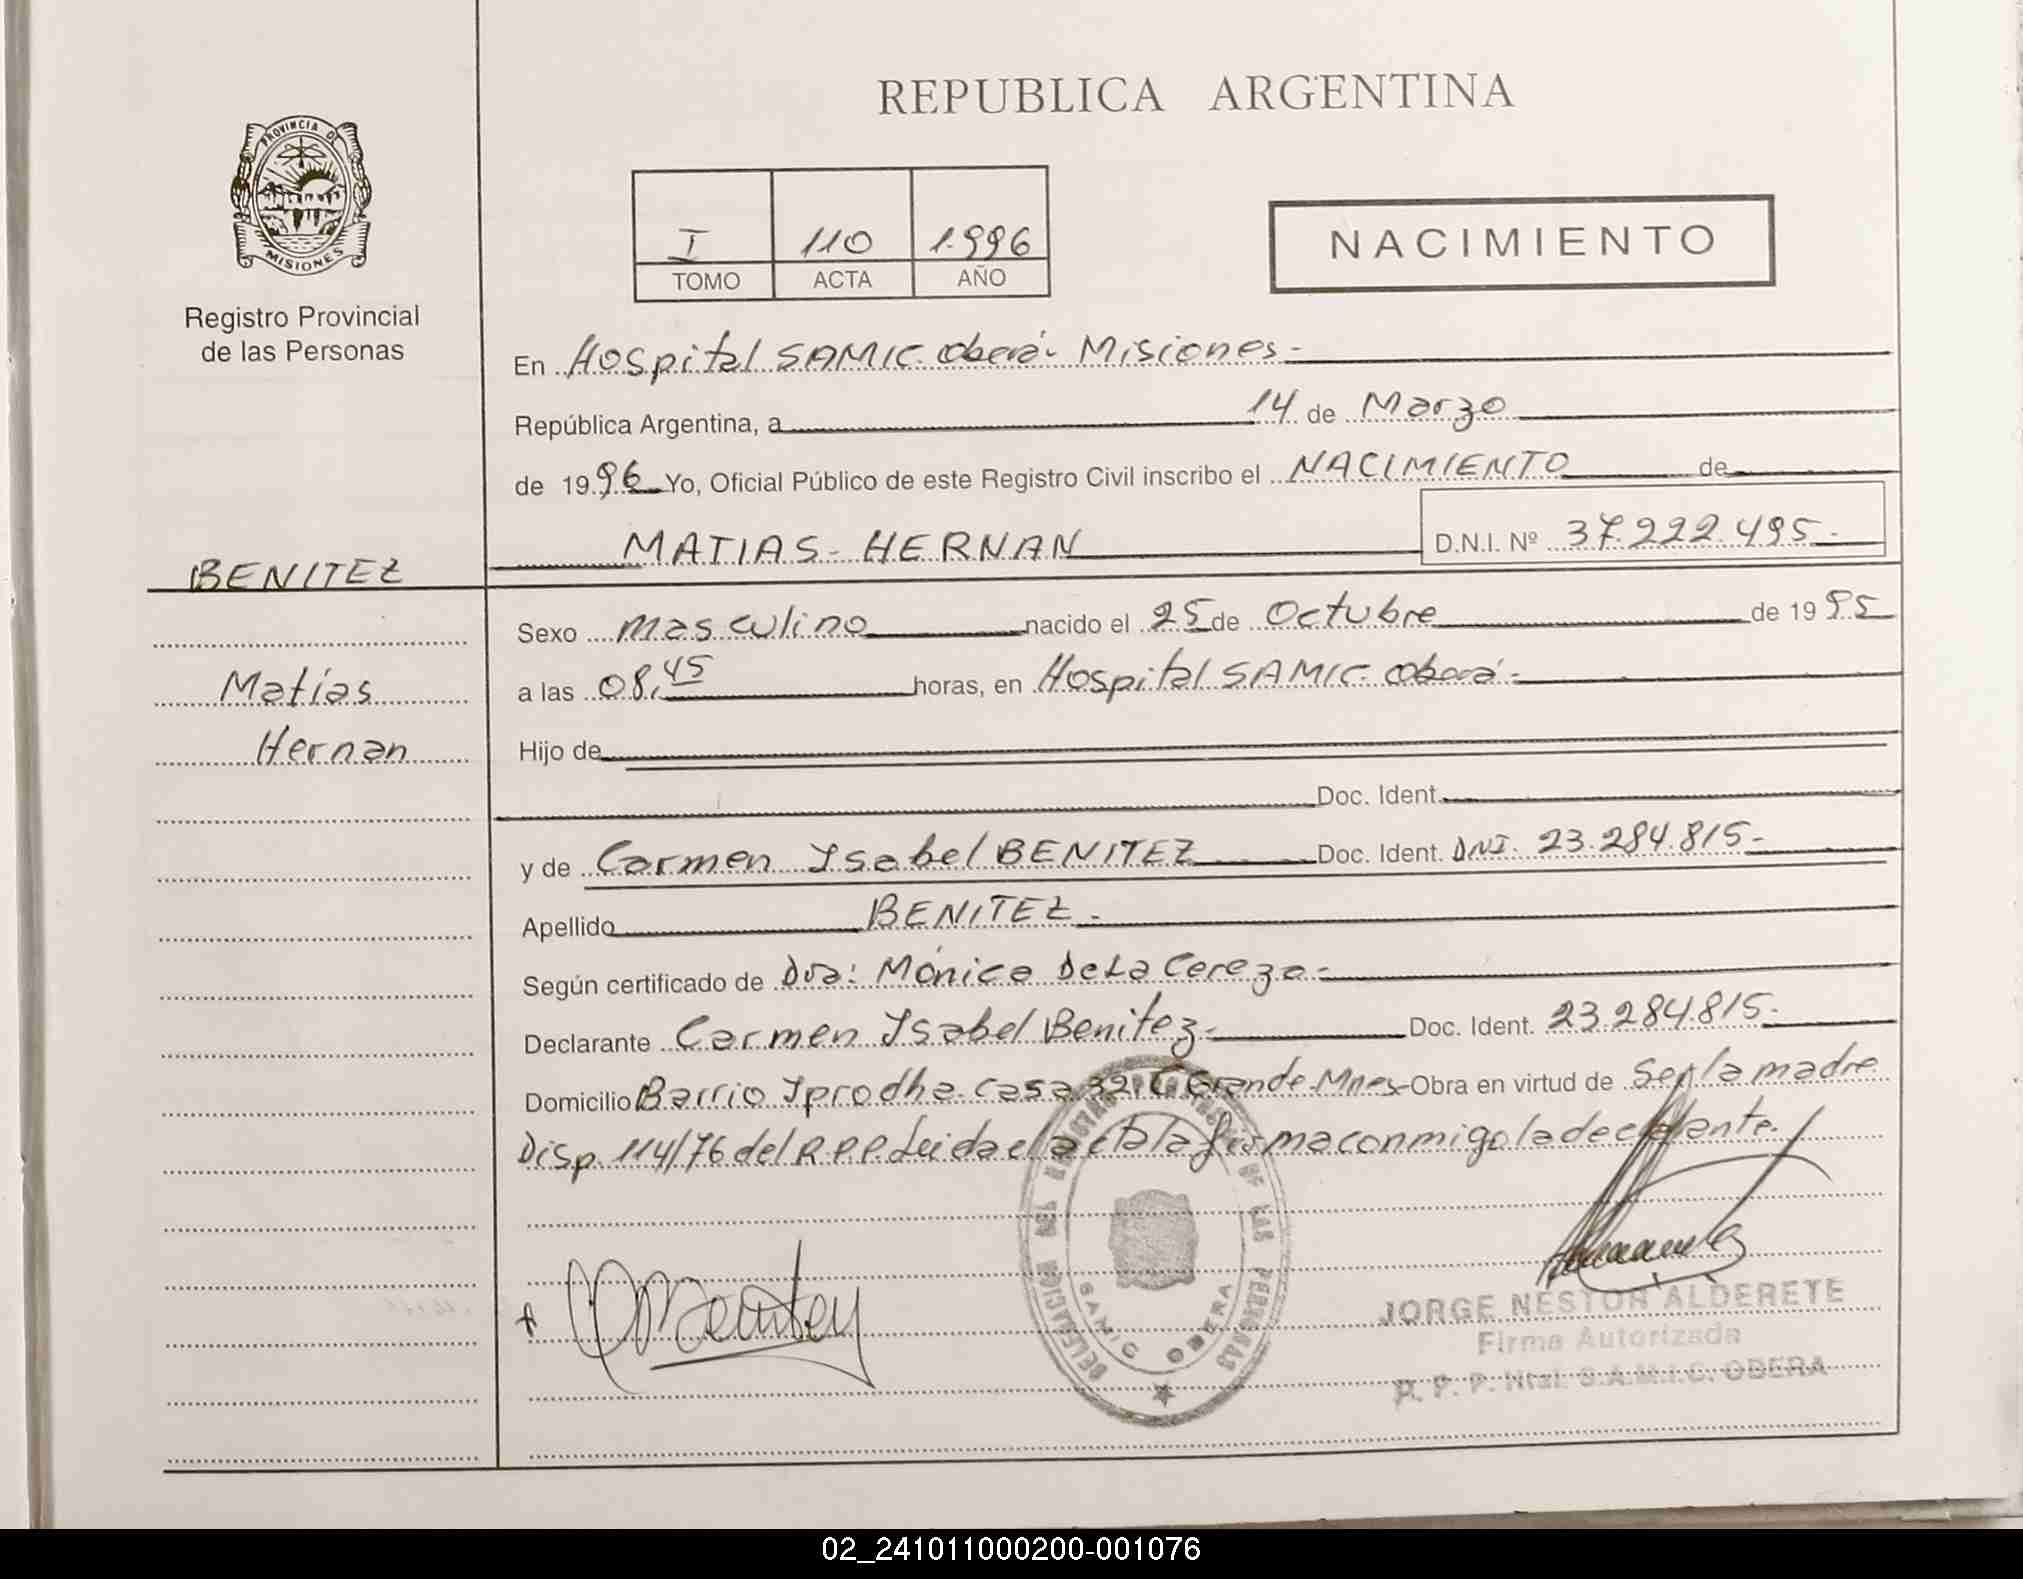 REPUBLICA ARGENTINA
PROVINCIA DE
MISIONES
Registro Provincial
de las Personas
I 110 1.996
TOMO ACTA AÑO
NACIMIENTO
En Hospital SAMIC. Oberá- Misiones-
República Argentina, a 14 de Marzo
de 1996 Yo, Oficial Público de este Registro Civil inscribo el NACIMIENTO de
MATIAS- HERNAN D.N.I. Nº 37.222.495-
BENITEZ
Matías
Hernan
Sexo masculino nacido el 25 de Octubre de 1995
a las 08,45 horas, en Hospital SAMIC- Oberá-
Hijo de
Doc. Ident.
y de Carmen Isabel BENITEZ Doc. Ident. DNI. 23.284.815-
Apellido BENITEZ-
Según certificado de Dra: Mónica De La Cereza-
Declarante Carmen Isabel Benitez- Doc. Ident. 23.284.815-
Domicilio Barrio Iprodha- casa 32. C. Grande-Mnes- Obra en virtud de ser la madre
Disp. 114/76 del R.P.P. Leida el acta la firma conmigo la declarante.
DELEGACION DEL REGISTRO PROVINCIAL DE LAS PERSONAS
SAMIC OBERA
Benitez
JORGE NESTOR ALDERETE
Firma Autorizada
R. P. P. Htal. S.A.M.I.C. OBERA
02_241011000200-001076